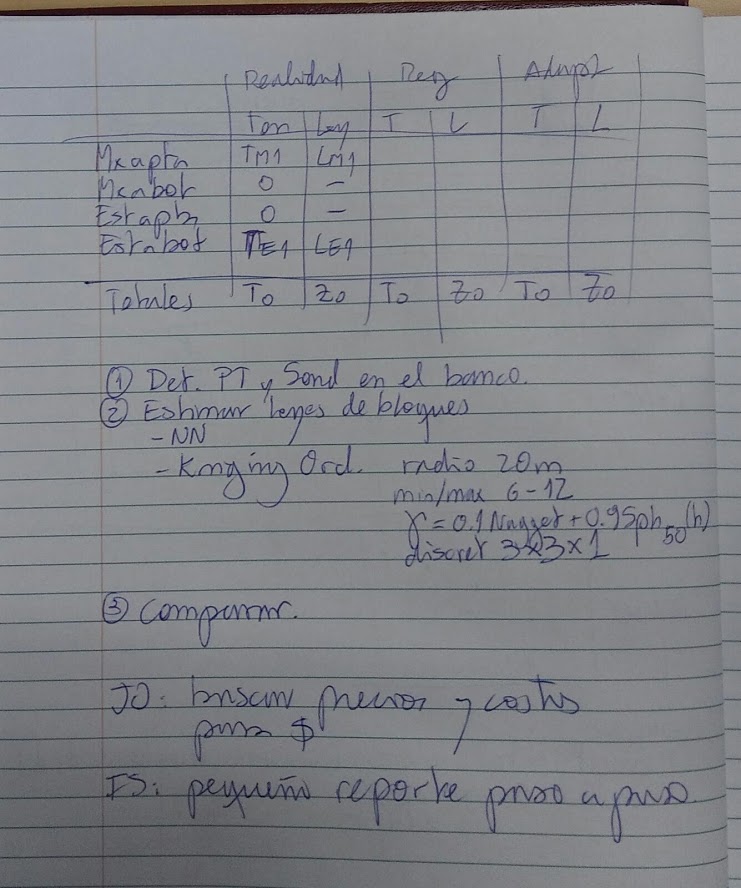 Realidad Reg Adapt
Ton Ley T L T L
Mxapta TM1 LM1
Mxabot 0 -
Estapta 0 -
Estabot TE1 LE1
Totales T0 Z0 T0 Z0 T0 Z0
① Det. PT y Sond en el banco.
② Estimar leyes de bloques
- NN
- Kriging Ord. radio 20m
min/max 6-12
γ = 0.1 Nugget + 0.9 Sph50(h)
discret 3x3x1
③ Comparar.
JO: buscar precios y costos
para $
FS: pequeño reporte paso a paso.